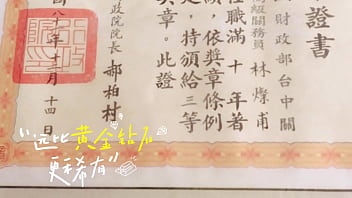 證書
財政部台中關
級關務員 林燦甫
任職滿十年著
，依獎章條例
定，特頒給三等
獎章。此證
政院院長 郝柏村
"远比黄金钻石
更稀有"